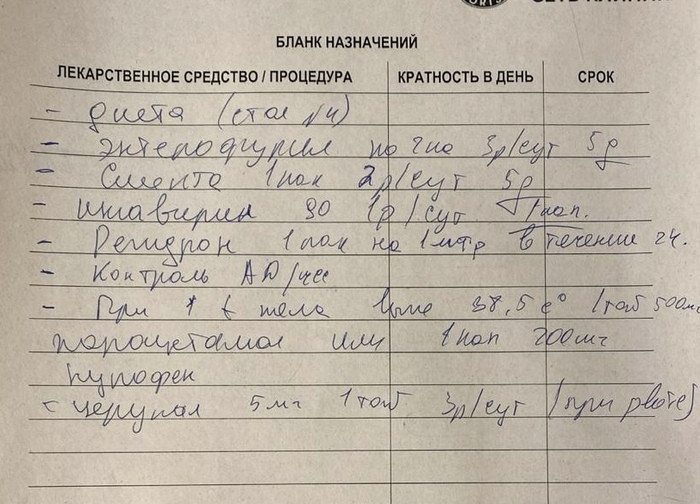 БЛАНК НАЗНАЧЕНИЙ
ЛЕКАРСТВЕННОЕ СРЕДСТВО / ПРОЦЕДУРА КРАТНОСТЬ В ДЕНЬ СРОК
- диета (стол №4)
- Энтерофурил по 3р/сут 5д
- Смекта 1 пак 2р/сут 5д
- ингавирин 90 1р/сут 1 кап.
- Регидрон 1 пак на 1 литр в течение 24.
- Контроль АД/чсс
- При ↑ t тела выше 38,5 c° 1 таб 500мг
парацетамол или 1 кап 200мг
нурофен
- церукал 5 мг 1 таб 3р/сут (при рвоте)